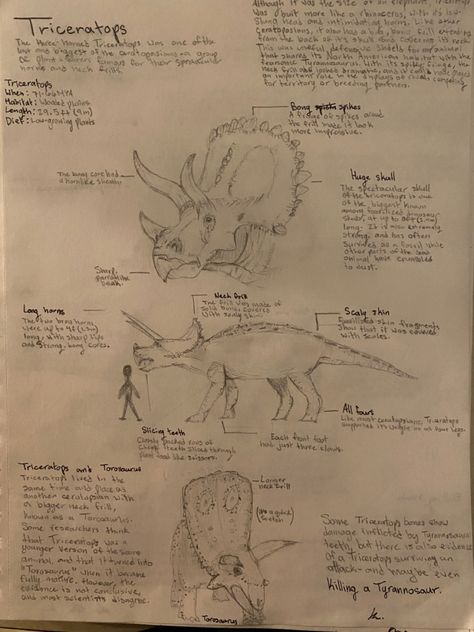 Triceratops
The three-horned Triceratops was one of the
last and biggest of the ceratopsians - a group
of plant-eaters famous for their spectacular
horns and neck frills.
Although it was the size of an elephant, Triceratops
was built more like a rhinoceros, with its low-
slung head and intimidating horns. Like other
ceratopsians, it also had a big, bony frill extending
from the back of its skull that covered its neck.
This was useful defensive shield for an animal
that shared its North American habitat with the
fearsome Tyrannosaurus. With its spiky fringe
neck frill also looked dramatic, and it could have played
an important role in the displays of rivals competing
for territory or breeding partners.
Triceratops
When:
Habitat: Wooded plains
Length: 29.5ft (9m)
Diet: Low-growing plants
Bony spikes
A fringe of spikes around
the frill made it look
more impressive.
The bony core had a
hornlike sheath.
Huge skull
The spectacular skull
of the triceratops is one
of the biggest known
among fossilized dinosaur
skulls, at up to
long. It is also extremely
strong, and has often
survived as a fossil while
other parts of the
animal have crumbled
to dust.
Sharp,
parrotlike
beak.
Long horns
The two brow horns
were up to
long, with sharp tips
and strong, bony cores.
Neck frill
The frill was made of
solid bone, covered
with scaly skin.
Scaly skin
Fossilized skin fragments
show that it was covered
with scales.
Slicing teeth
Closely packed rows of
cheek teeth sliced through
plant food like scissors.
Each front foot
had just three claws.
All fours
Like most ceratopsians, Triceratops
supported its weight on all four legs.
Triceratops and Torosaurus
Triceratops lived in the
same time and place as
another ceratopsian with
a bigger neck frill,
known as a Torosaurus.
Some researchers think
that Triceratops was a
younger version of the same
animal, and that it turned into
"Torosaurus" when it became
fully mature. However, the
evidence is not conclusive,
and most scientists disagree.
Larger
neck frill
Torosaurus
Some Triceratops bones show
damage inflicted by Tyrannosaurus
teeth, but there is also evidence
of a Triceratops surviving an
attack - and maybe even
Killing a Tyrannosaur.